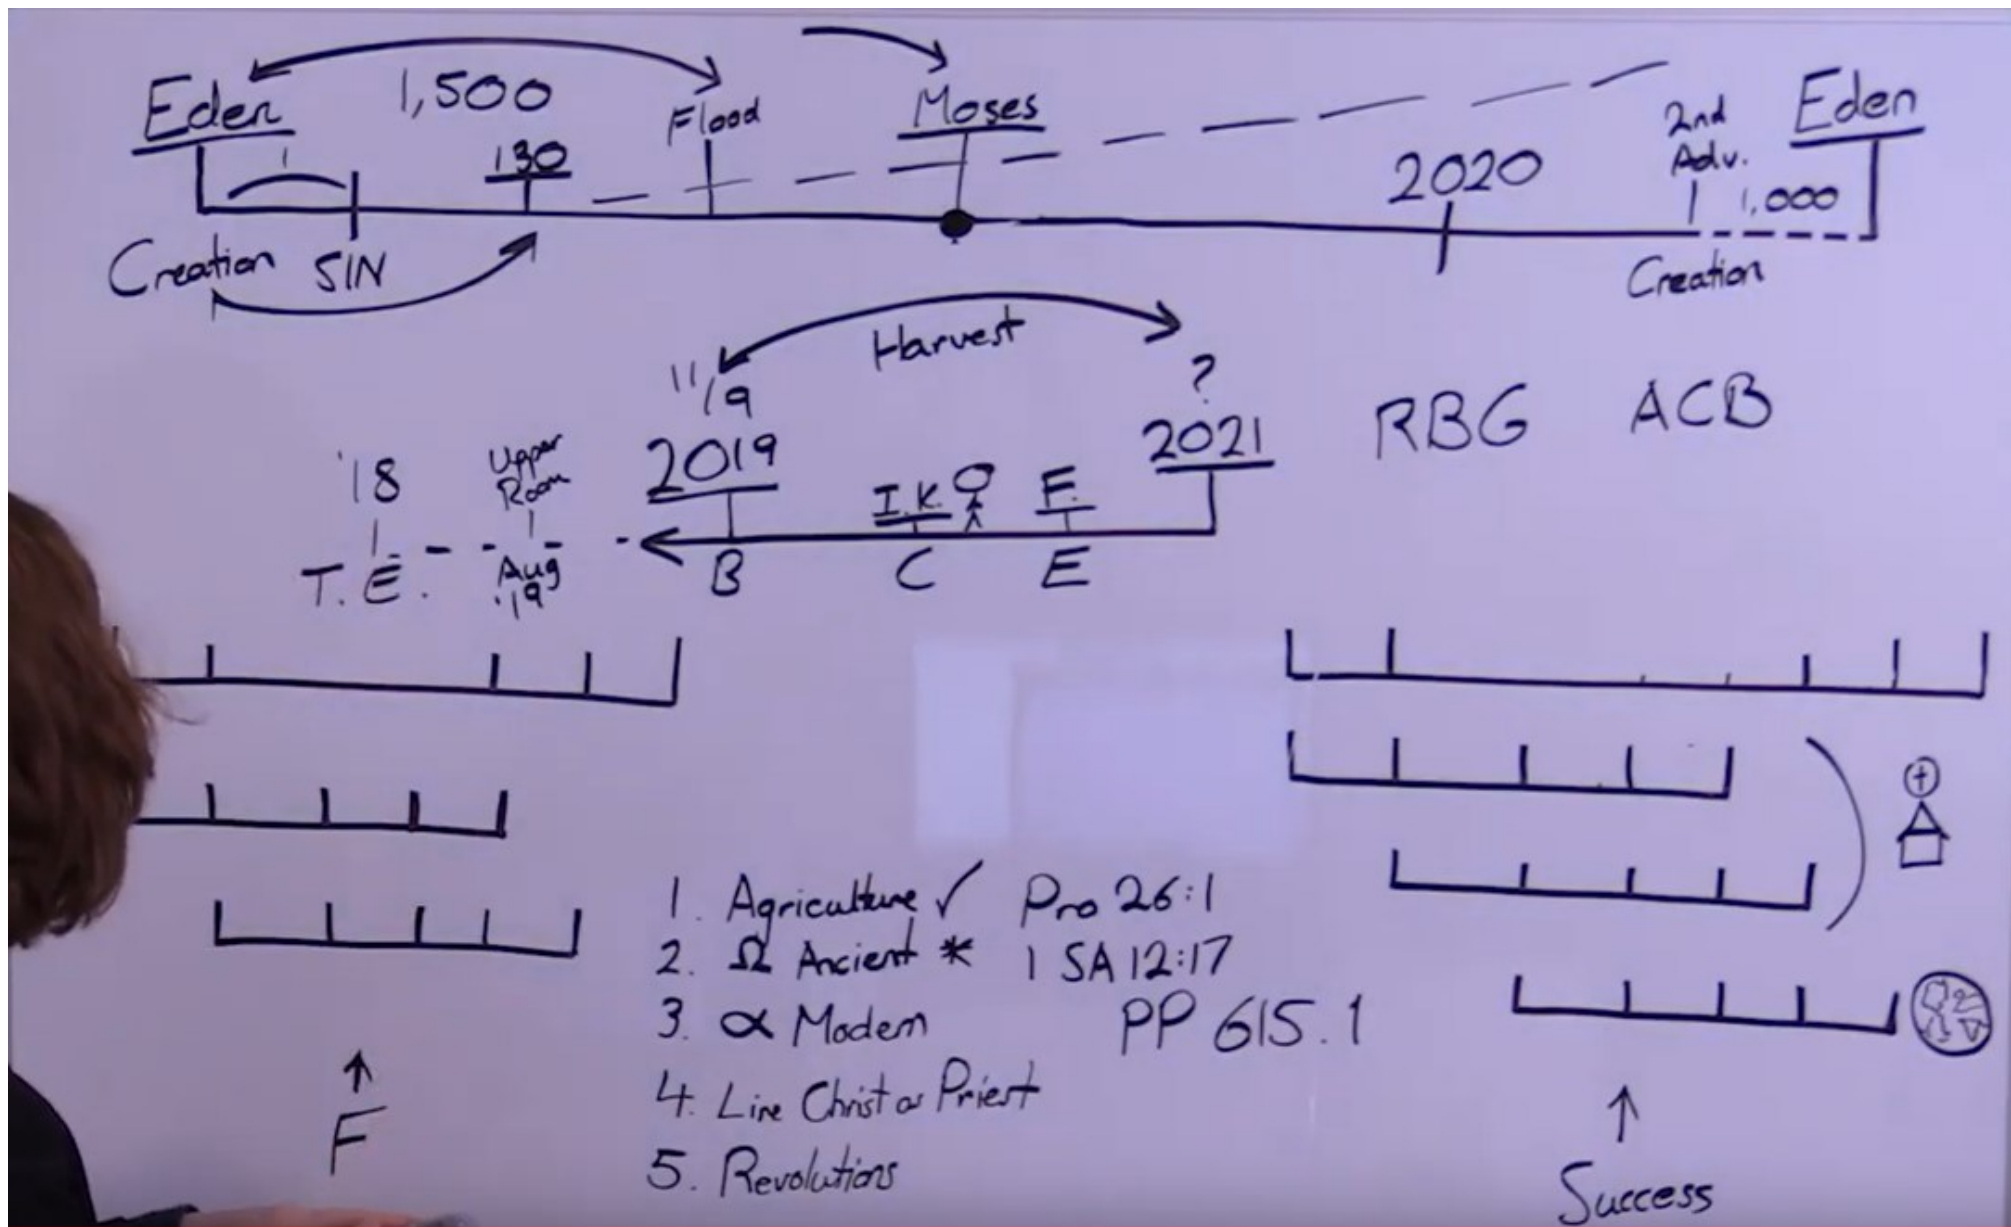 Eden 1,500 Flood Moses 2020 2nd Adv. Eden
1 130 1,000
Creation SIN Creation
Harvest
'18 Upper Room 11/9 2019 I.K. F. ? 2021 RBG ACB
T.E. Aug '19 B C E
1. Agriculture ✓ Pro 26:1
2. Ω Ancient * 1 SA 12:17
3. α Modern PP 615.1
4. Line Christ as Priest
5. Revolutions
F
Success